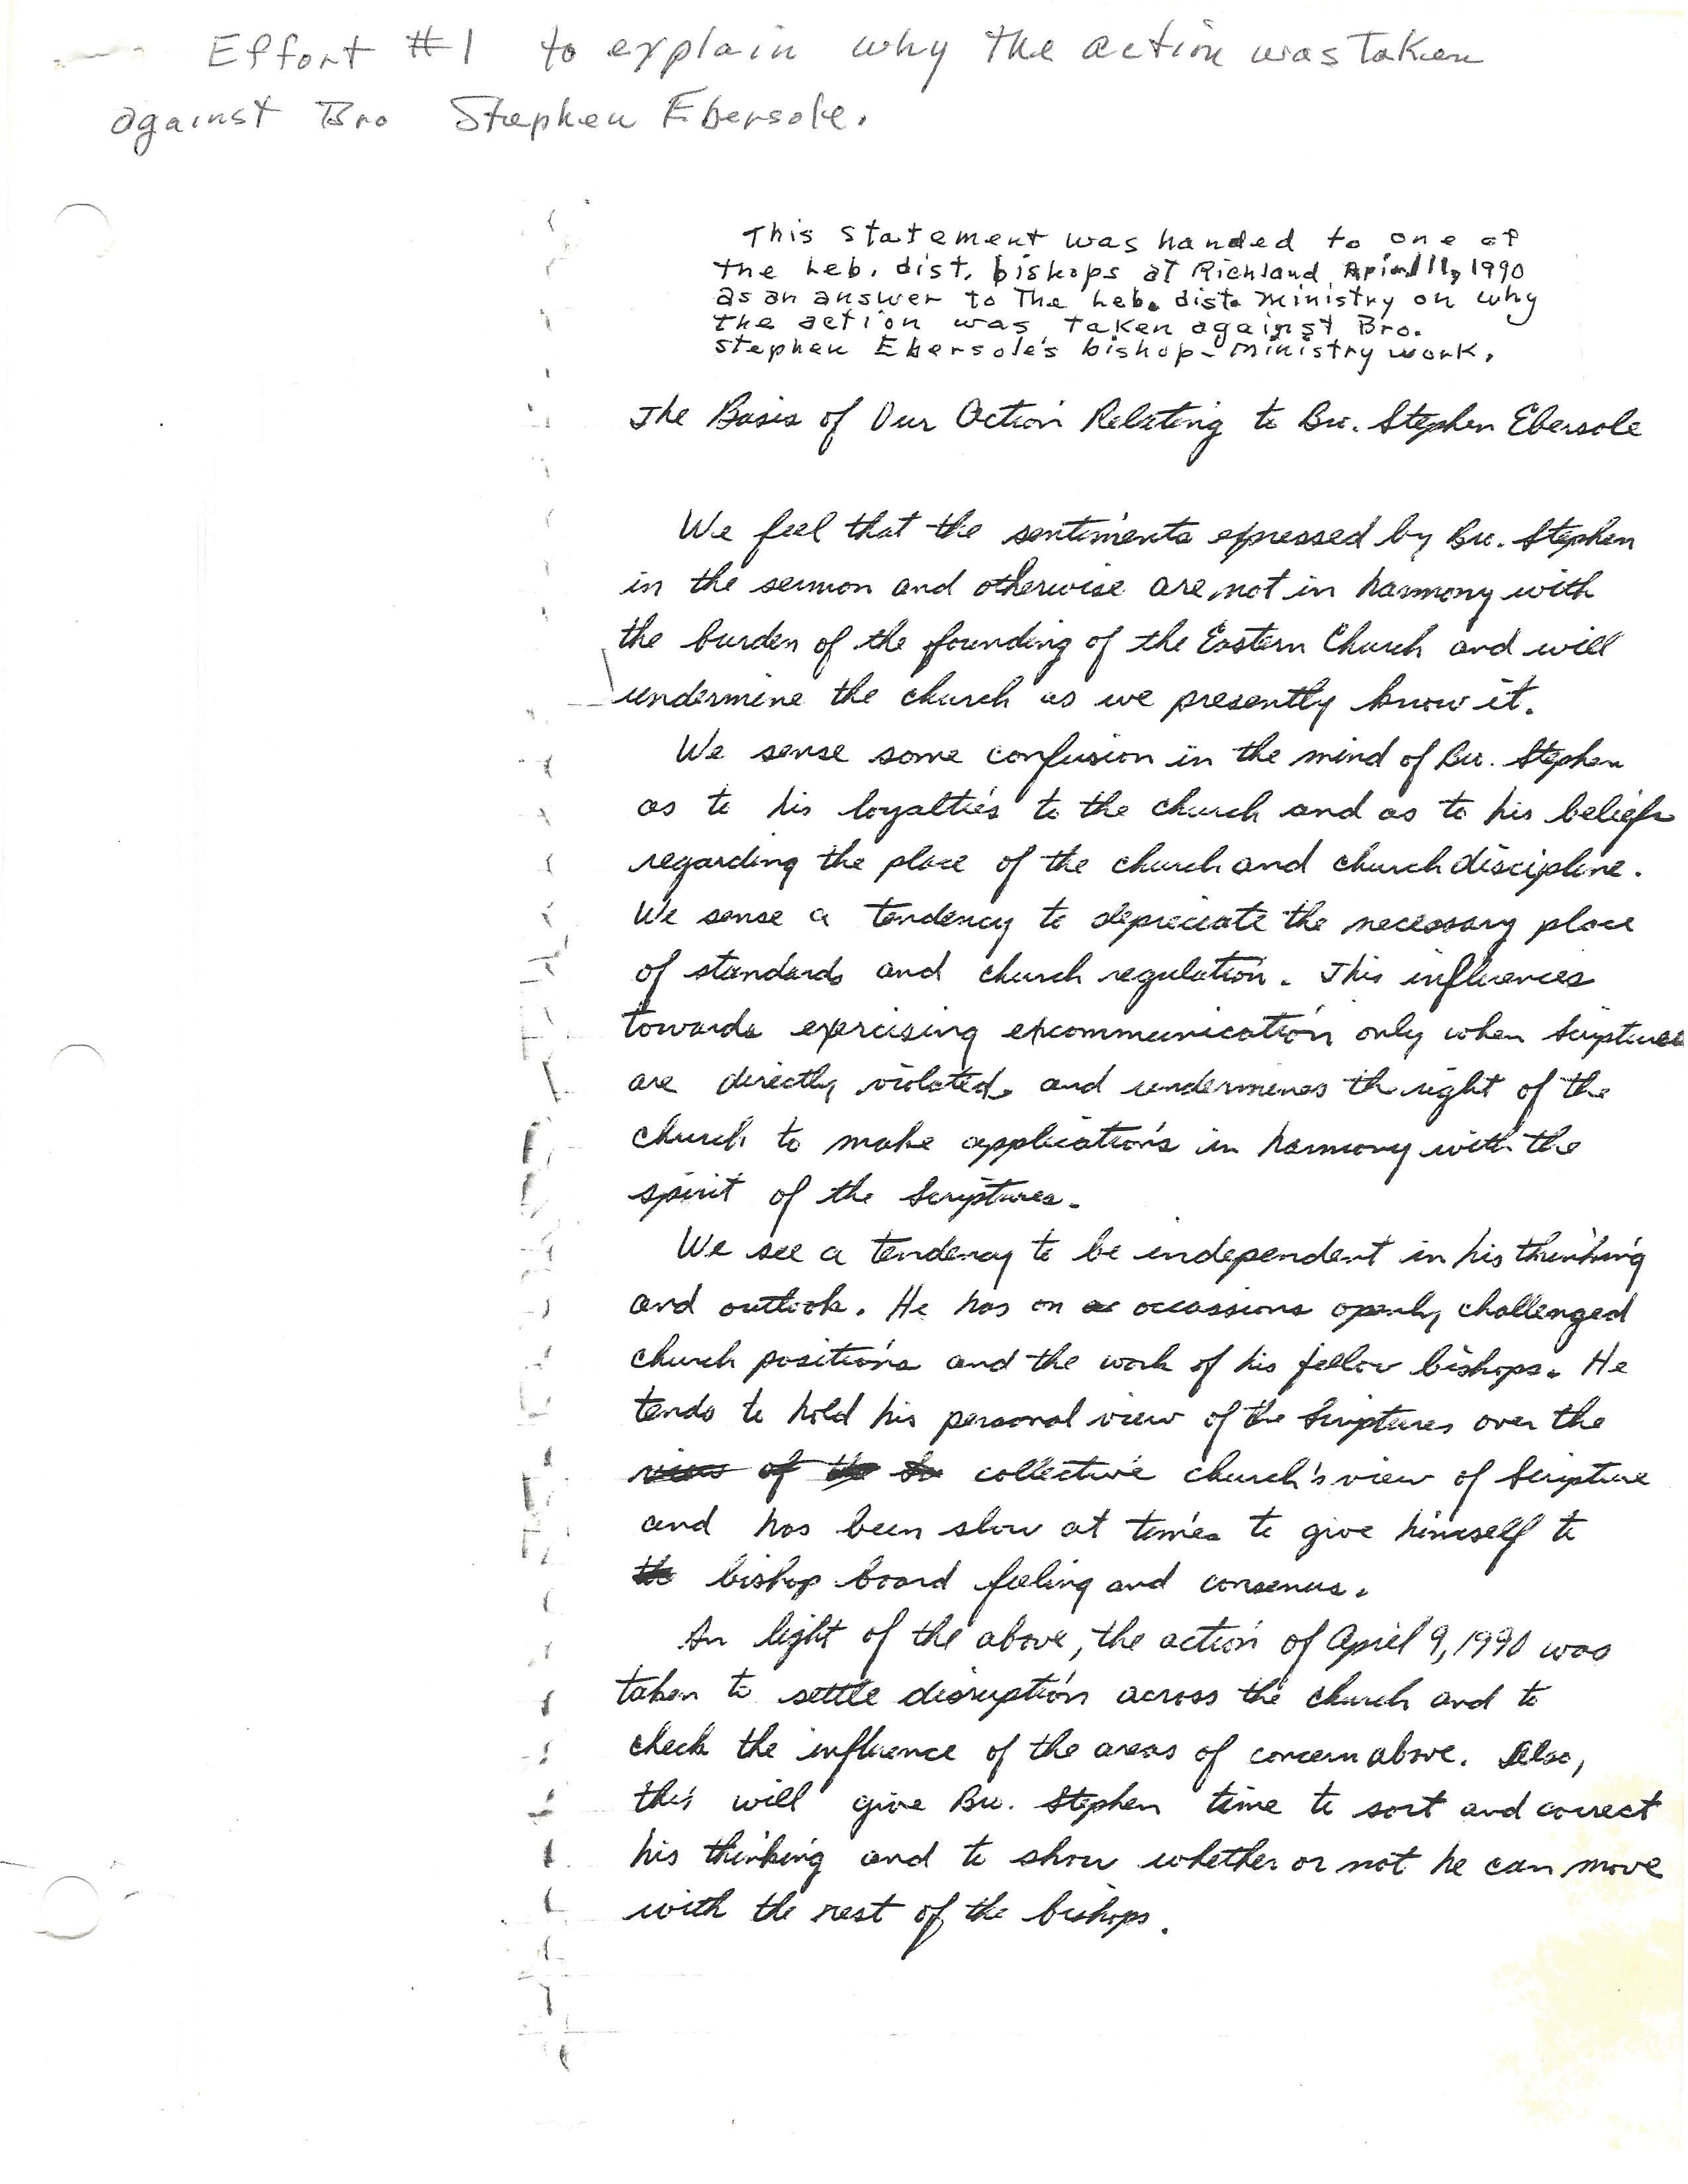 Effort #1 to explain why the action was taken
against Bro Stephen Ebersole.
This statement was handed to one of
the Leb. dist. bishops at Richland April 11, 1990
as an answer to the Leb. dist. ministry on why
the action was taken against Bro.
Stephen Ebersole's bishop-ministry work.
The Basis of Our Action Relating to Bro. Stephen Ebersole
We feel that the sentiments expressed by Bro. Stephen
in the sermon and otherwise are not in harmony with
the burden of the founding of the Eastern Church and will
undermine the church as we presently know it.
We sense some confusion in the mind of Bro. Stephen
as to his loyalties to the church and as to his beliefs
regarding the place of the church and church discipline.
We sense a tendency to depreciate the necessary place
of standards and church regulation. This influences
towards exercising excommunication only when Scriptures
are directly violated and undermines th right of the
church to make applications in harmony with the
spirit of the Scriptures.
We see a tendency to be independent in his thinking
and outlook. He has on occassions openly challenged
church positions and the work of his fellow bishops. He
tends to hold his personal view of the Scriptures over the
view of the collective church's view of Scripture
and has been slow at times to give himself to
the bishop board feeling and consenus.
In light of the above, the action of April 9, 1990 was
taken to settle disruption across the church and to
check the influence of the areas of concern above. Also,
this will give Bro. Stephen time to sort and correct
his thinking and to show whether or not he can move
with the rest of the bishops.